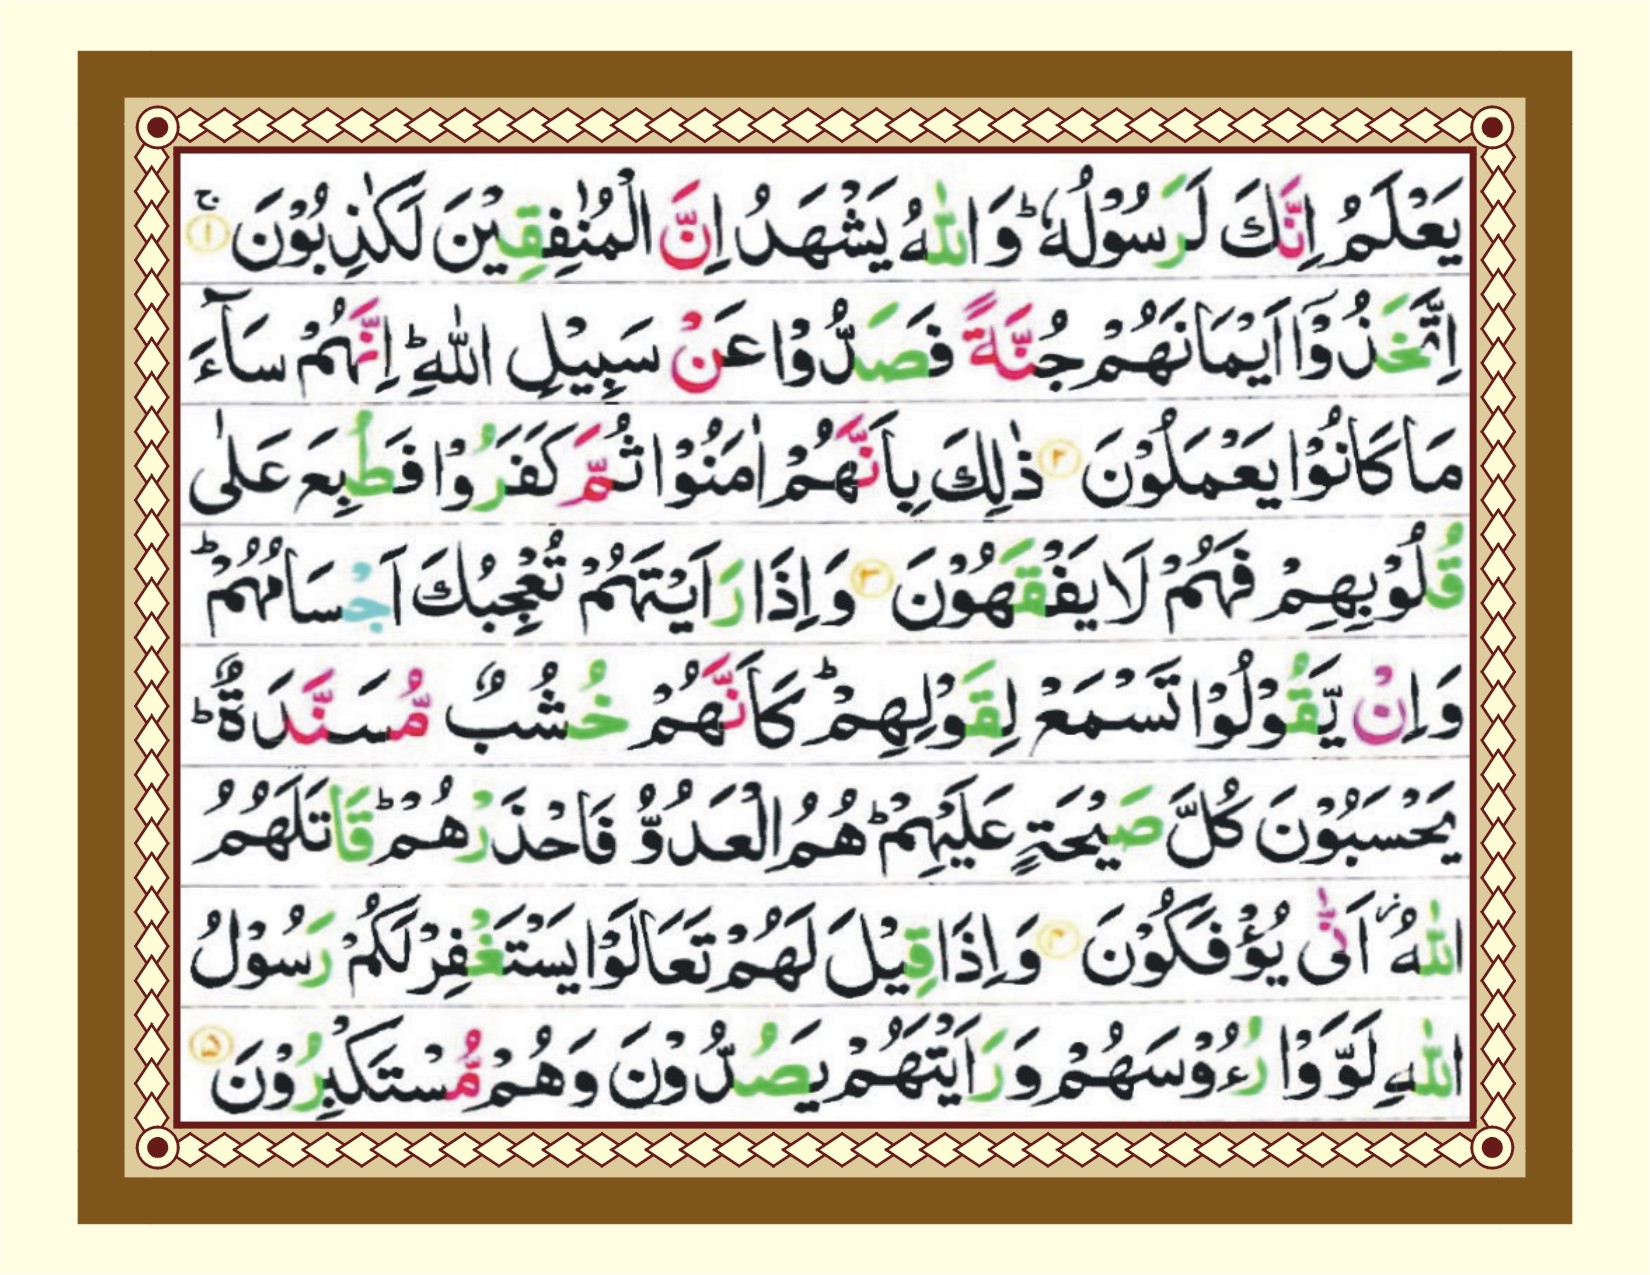 يَعْلَمُ اِنَّكَ لَرَسُوْلُهٗ ؕ وَاللّٰهُ يَشْهَدُ اِنَّ الْمُنٰفِقِيْنَ لَكٰذِبُوْنَ ۚ ۱
اِتَّخَذُوْۤا اَيْمَانَهُمْ جُنَّةً فَصَدُّوْا عَنْ سَبِيْلِ اللّٰهِ ؕ اِنَّهُمْ سَآءَ
مَا كَانُوْا يَعْمَلُوْنَ ۲ ذٰلِكَ بِاَنَّهُمْ اٰمَنُوْا ثُمَّ كَفَرُوْا فَطُبِعَ عَلٰى
قُلُوْبِهِمْ فَهُمْ لَا يَفْقَهُوْنَ ۳ وَاِذَا رَاَيْتَهُمْ تُعْجِبُكَ اَجْسَامُهُمْ ؕ
وَاِنْ يَّقُوْلُوْا تَسْمَعْ لِقَوْلِهِمْ ؕ كَاَنَّهُمْ خُشُبٌ مُّسَنَّدَةٌ ؕ
يَحْسَبُوْنَ كُلَّ صَيْحَةٍ عَلَيْهِمْ ؕ هُمُ الْعَدُوُّ فَاحْذَرْهُمْ ؕ قَاتَلَهُمُ
اللّٰهُ ؗ اَنّٰى يُؤْفَكُوْنَ ۴ وَاِذَا قِيْلَ لَهُمْ تَعَالَوْا يَسْتَغْفِرْ لَكُمْ رَسُوْلُ
اللّٰهِ لَوَّوْا رُءُوْسَهُمْ وَرَاَيْتَهُمْ يَصُدُّوْنَ وَهُمْ مُّسْتَكْبِرُوْنَ ۵